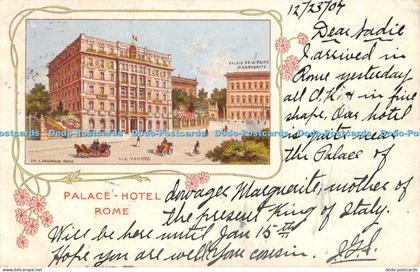 12/23/04
Dear Sadie
I arrived in
Rome yesterday
all O.K. & in fine
shape. Our hotel
is next
the Palace of
Dowager Marguerite, mother of
the present King of Italy.
Will be here until Jan 15th
Hope you are well. Your cousin.
PALAIS DE LA REINE
MARGUERITE
VIA VENETO
PALACE-HOTEL
ROME
Dodo-Postcards Dodo-Postcards Dodo-Postcards Dodo-Postcards Dodo-Postcards